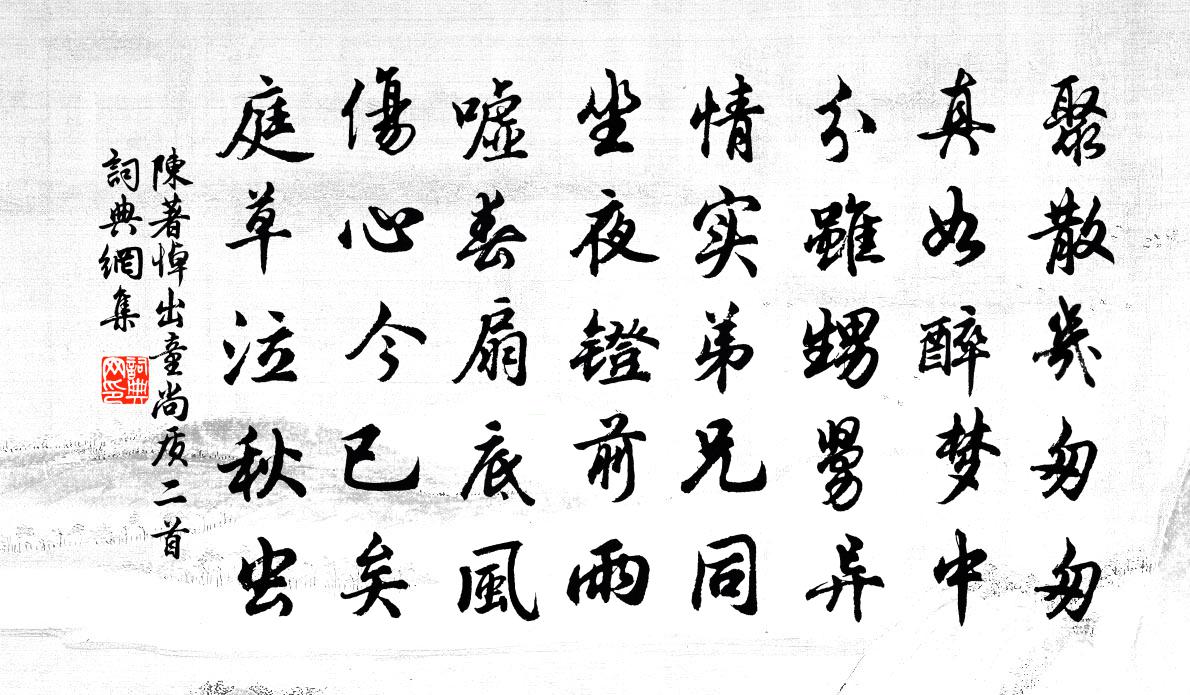 聚散幾匆匆
真如醉梦中
分雖甥舅异
情实弟兄同
坐夜鐙前雨
嘘春扇底風
傷心今已矣
庭草泣秋虫
陳著悼出童尚质二首
詞典網集
詞典网印